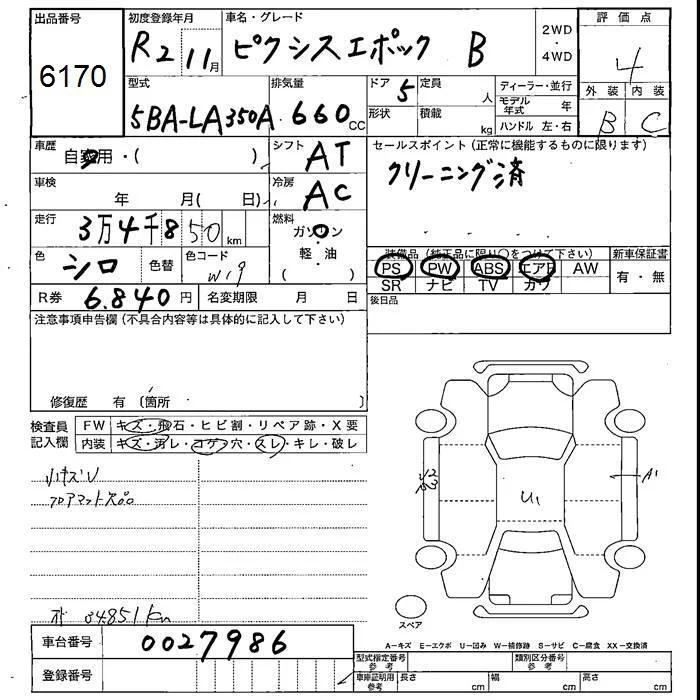 出品番号 初度登録年月 車名・グレード 評価点
6170 R2 年 11月 ピクシスエポック B 2WD・4WD 4
型式 排気量 ドア 5 定員 人 ディーラー・並行 外装 内装
5BA-LA350A 660cc 形状 積載 kg モデル年式 年 B C
ハンドル 左・右
車歴 自家用・( ) シフト AT セールスポイント(正常に機能するものに限ります)
車検 年 月( 日) 冷房 AC クリーニング済
走行 3万4千850km 燃料 ガソリン
色 シロ 色替 色コード W19 軽・油 ( )
装備品(純正品に限り○をつけて下さい) 新車保証書
PS PW ABS エアB AW 有・無
SR ナビ TV カワ
R券 6.840円 名変期限 月 日 後日品
注意事項申告欄(不具合内容等は具体的に記入して下さい)
修復歴 有(箇所 )
検査員記入欄 FW キズ・飛石・ヒビ割・リペア跡・X要
内装 キズ・汚レ・コゲ穴・スレ・キレ・破レ
小キズU
フロアマット欠品
A1
U1
34851km
スペア
車台番号 0027986
A=キズ E=エクボ U=凹み W=補修跡 S=サビ C=腐食 XX=交換済
登録番号
型式指定番号 参考 類別区分番号 参考
車庫証明用 参考 長さ cm 幅 cm 高さ cm